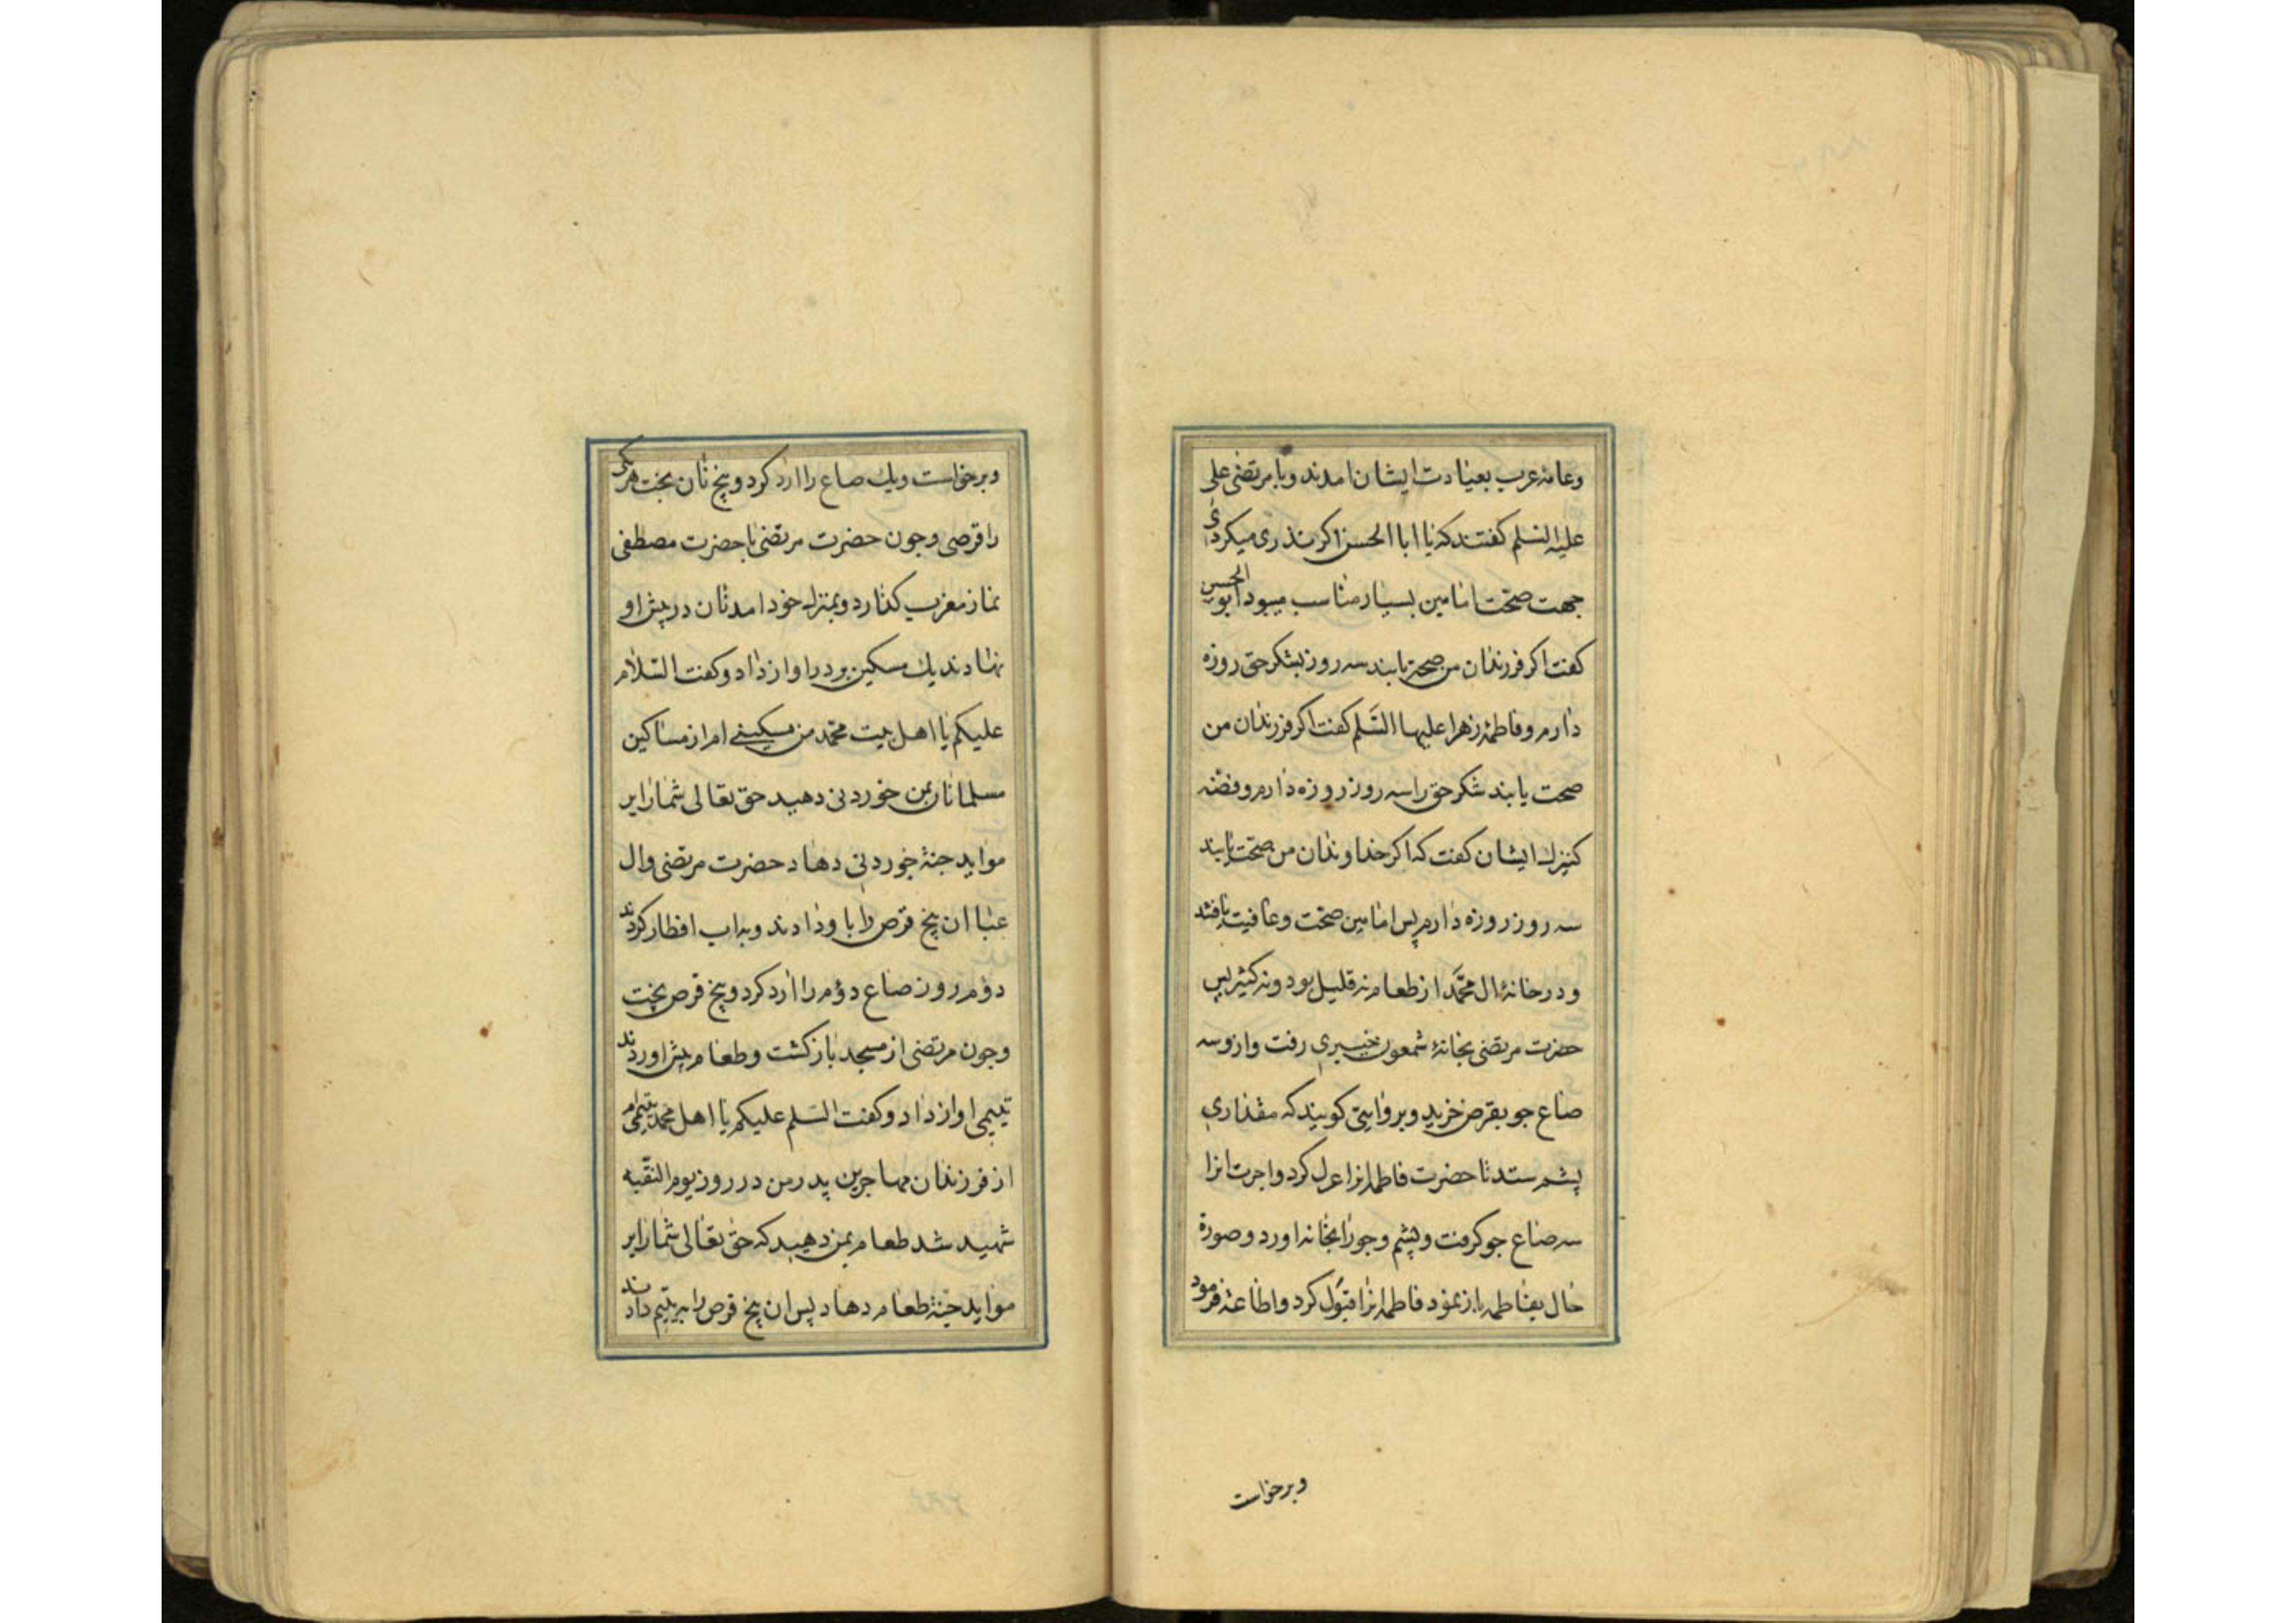 وعامه عرب بعیادت ایشان امدند وبا مرتضی علی
علیه السلم کفتند که یا ابا الحسن اکر نذری میکردی
جهت صحت امامین بسیار مناسب میبود ابو الحسن
کفت اکر فرزندان من صحت یابند سه روز بشکر حق روزه
دارم وفاطمهٔ زهرا علیها السَّلم کفت اکر فرزندان من
صحت یابند شکر حق را سه روز روزه دارم وفضّه
کنیزك ایشان کفت که اکر خداوندان من صحت یابند
سه روز روزه دارم پس امامین صحت وعافیت یافتند
ودر خانهٔ ال محمَّد از طعام نه قلیل بود ونه کثیر پس
حضرت مرتضی بخانهٔ شمعون خیبری رفت وازو سه
صاع جو بقرض خرید وبروایتی کویند که مقداری
پشم ستد تا حضرت فاطمه انرا غزل کرد واجرت انرا
سه صاع جو کرفت وپشم وجو را بخانه اورد وصورة
حال بفاطمه باز نمود فاطمه انرا قبول کرد واطاعة فرمود
وبرخواست
وبرخواست ویك صاع را ارد کرد وپنج نان بخت هر یکی
را قرصی وجون حضرت مرتضی با حضرت مصطفی
نماز مغرب کذارد وبمنزل خود امد نان در پیش او
نهادند یك مسکین بر در اواز داد وکفت السّلام
علیکم یا اهل بیت محمّد من مسکینے ام از مساکین
مسلمانان بمن خوردنی دهید حق تعالی شما را بر
مواید جنة خوردنی دهاد حضرت مرتضی وال
عبا ان پنج قرص را باو دادند وبه اب افطار کردند
دوم روز صاع دوم را ارد کرد وپنج قرص بخت
وجون مرتضی از مسجد باز کشت وطعام پیش اوردند
یتیمی اواز داد وکفت السّلم علیکم یا اهل محمد یتیمی ام
از فرزندان مهاجرین پدر من در روز یوم النقبه
شهید شد طعام بمن دهید که حق تعالی شما را بر
مواید جنة طعام دهاد پس ان پنج قرص را به یتیم دادند